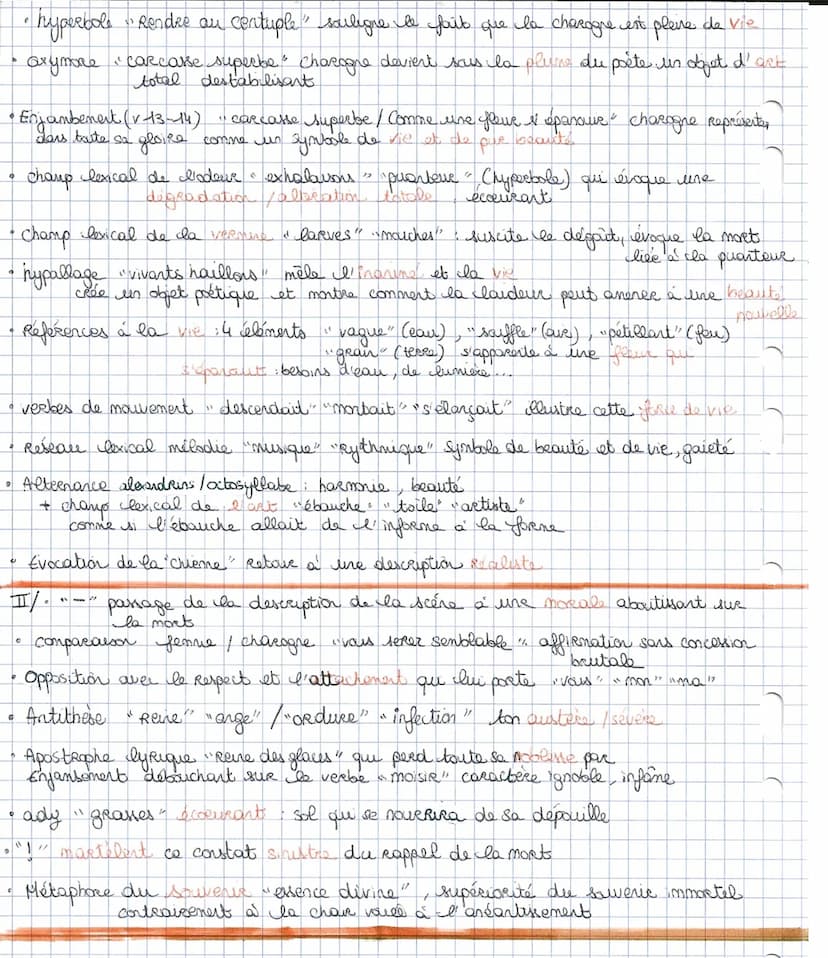 • hyperbole "Rendre au centuple" souligne le fait que la charogne est pleine de vie
• oxymore "carcasse superbe" charogne devient sous la plume du poète un objet d'art
total destabilisant
• Enjambement (v 13-14) "carcasse superbe / Comme une fleur s'épanouir" charogne représentée
dans toute sa gloire comme un symbole de vie et de pure beauté
• champ lexical de l'odeur "exhalaisons" "puanteur" (hyperbole) qui évoque une
dégradation / altération totale, écoeurant
• Champ lexical de la vermine "larves" "mouches" : suscite le dégoût, évoque la mort
liée à la puanteur
• hypallage "vivants haillons" mêle l'inanimé et la vie
crée un objet poétique et montre comment la laideur peut amener à une beauté
nouvelle
• Références à la vie : 4 éléments "vague" (eau), "souffle" (air), "pétillant" (feu)
"grain" (terre) s'apparente à une fleur qui
s'épanouit : besoins d'eau, de lumière...
• verbes de mouvement "descendait" "montait" "s'élançait" illustre cette force de vie
• Réseau lexical mélodie "musique" "rythmique" symbole de beauté et de vie, gaieté
• Alternance alexandrins / octosyllabe : harmonie, beauté
+ champ lexical de l'art "ébauche" "toile" "artiste"
comme si l'ébauche allait de l'informe à la forme
• Evocation de la "chienne" retour à une description réaliste
II/ • "—" passage de la description de la scène à une morale aboutissant sur
la mort
• comparaison femme / charogne "vous serez semblable" affirmation sans concession
brutale
• Opposition avec le respect et l'attachement qu'il lui porte "vous" "mon" "ma"
• Antithèse "Reine" "ange" / "ordure" "infection" ton austère / sévère
• Apostrophe lyrique "Reine des glaces" qui perd toute sa noblesse par
Enjambement débouchant sur le verbe "moisir" caractère ignoble, infâme
• adj "grasses" écoeurant : sol qui se nourrira de sa dépouille
• "!" martèlent ce constat sinistre du rappel de la mort
• Métaphore du souvenir "essence divine", supériorité du souvenir immortel
contrairement à la chair vouée à l'anéantissement